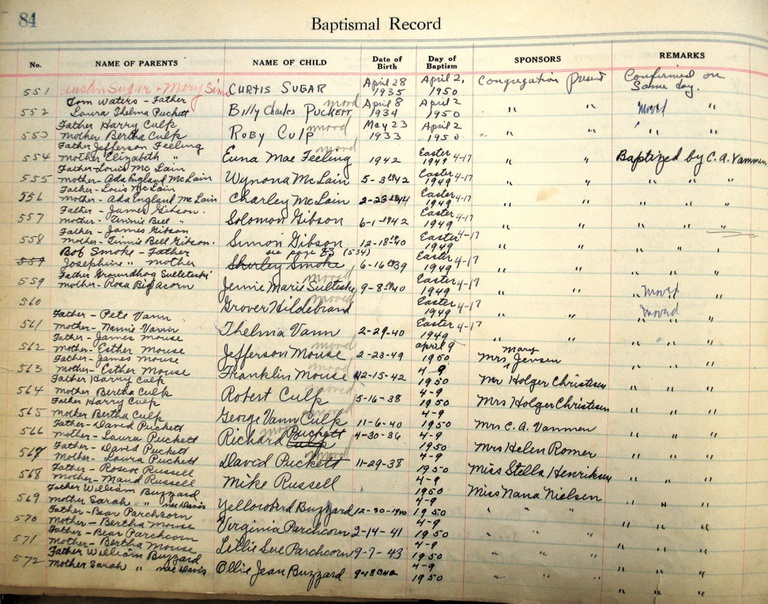 84
Baptismal Record
No. NAME OF PARENTS NAME OF CHILD Date of Birth Day of Baptism SPONSORS REMARKS
551 Austin Sugar + Mary Sims CURTIS SUGAR April 28 1935 April 2, 1950 Congregation present Confirmed on same day.
552 Tom Waters - Father Laura Thelma Puckett Billy Charles PUCKETT moved April 8 1934 April 2 1950 " " moved "
553 Father Harry Culp Mother Bertha Culp RUBY CULP moved May 23 1933 April 2 1950 " " " "
554 Father Jefferson Feeling Mother Elizabeth " Euna Mae Feeling moved 1942 Easter 4-17 1949 " " Baptized by C. A. Vammen
555 Father-Louis McLain Mother-Ada England McLain Wynona McLain 5-3-1942 Easter 4-17 1949 " " " " "
556 Father-Louis McLain Mother-Ada England McLain Charley McLain 2-23-1944 Easter 4-17 1949 " " " " "
557 Father-James Gibson Mother- Bell " Solomon Gibson 6-1-1942 Easter 4-17 1949 " " " "
558 Father-James Gibson Mother- Bell Gibson Simon Gibson 12-18-40 Easter 4-17 1949 " " " " "
559 Bob Smoke - Father Josephine " mother see page 83 (534) Shirley Smoke 6-16-39 Easter 4-17 1949 " " " " "
559 Father Groundhog Mother-Rosa Big Acorn Jennie Marie moved 9-8-40 Easter 4-17 1949 " " moved "
560 Grover Hildebrand moved Easter 4-17 1949 " " moved "
561 Father-Pete Vann Mother-Nannie Vann Thelma Vann moved 2-29-40 Easter 4-17 1949 " " " "
562 Father-James Mouse Mother-Esther Mouse Jefferson Mouse moved 2-23-49 April 9 1950 Mrs Mary Jensen " "
563 Father-James Mouse Mother-Esther Mouse Franklin Mouse 12-15-42 4-9 1950 Mr Holger Christensen " "
564 Father Harry Culp Mother Bertha Culp Robert Culp moved 5-16-38 4-9 1950 Mrs Holger Christensen " "
565 Father Harry Culp Mother Bertha Culp George Vann Culp moved 11-6-40 4-9 1950 Mrs C. A. Vammen " "
566 Father-David Puckett Mother-Laura Puckett Richard Culp Puckett moved 4-30-36 4-9 1950 Mrs Helen Romer " "
567 Father-David Puckett Mother-Laura Puckett David Puckett moved 11-29-38 4-9 1950 Miss Stella Henriksen " "
568 Father-Roscoe Russell Mother-Maud Russell Mike Russell 4-9 1950 Miss Nana Nielsen " "
569 Father William Buzzard Mother Sarah " nee Davis Yellowbird Buzzard 12-30-1940 4-9 1950 " " " "
570 Father-Bear Parchcorn Mother-Bertha Mouse Virginia Parchcorn 2-14-41 4-9 1950 " " " "
571 Father-Bear Parchcorn Mother-Bertha Mouse Lillie Sue Parchcorn 9-7-43 4-9 1950 " " " "
572 Father William Buzzard Mother Sarah " nee Davis Ollie Jean Buzzard 4-9 1950 " " " "